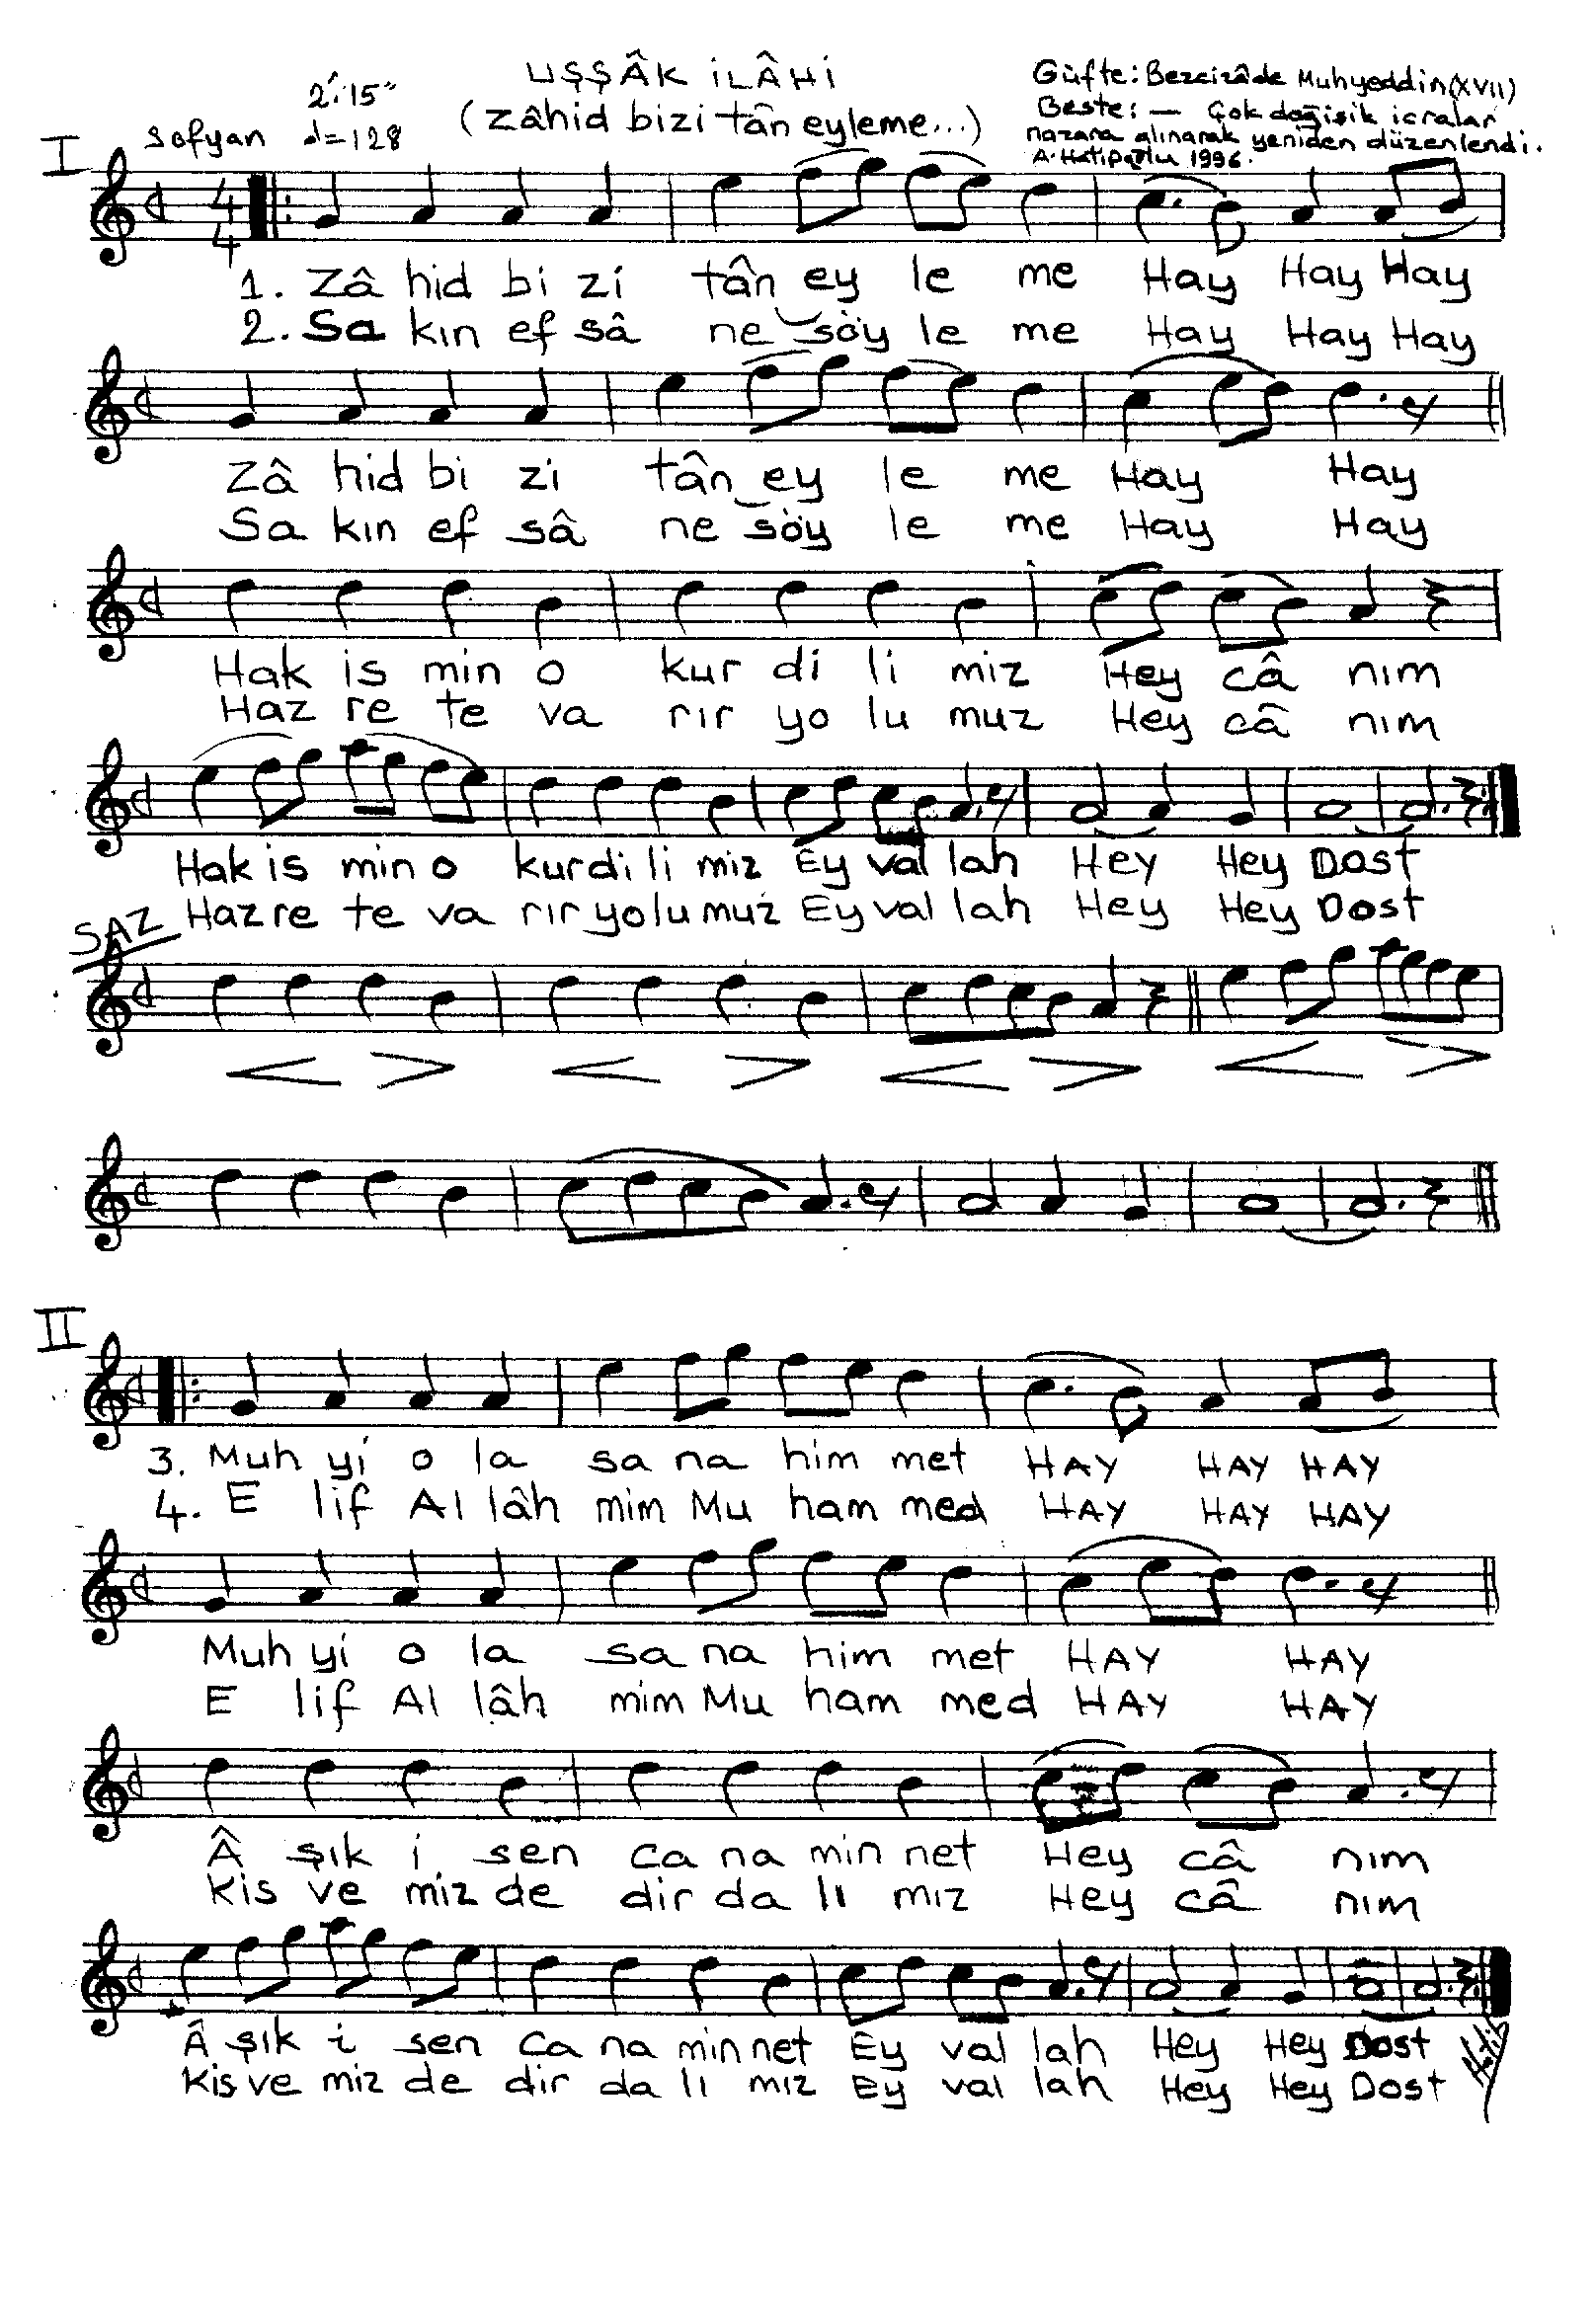 UŞŞÂK İLÂHİ
(Zâhid bizi tân eyleme...)
2':15"
Sofyan ♩=128
Güfte: Bezcizâde Muhyeddin (XVII)
Beste: — Çok değişik icralar
nazara alınarak yeniden düzenlendi.
A. Hatipoğlu 1996.
I
4
4
1. Zâ hid bi zi tân ey le me Hay Hay Hay
2. Sa kın ef sâ ne söy le me Hay Hay Hay
Zâ hid bi zi tân ey le me Hay Hay
Sa kın ef sâ ne söy le me Hay Hay
Hak is min o kur di li miz Hey câ nım
Haz re te va rır yo lu muz Hey câ nım
Hak is min o kur di li miz Ey val lah Hey Hey Dost
Haz re te va rır yo lu muz Ey val lah Hey Hey Dost
SAZ
II
3. Muh yi o la sa na him met HAY HAY HAY
4. E lif Al lâh mim Mu ham med HAY HAY HAY
Muh yi o la sa na him met HAY HAY
E lif Al lâh mim Mu ham med HAY HAY
 şık i sen ca na min net Hey câ nım
Kis ve miz de dir da lı mız Hey câ nım
 şık i sen ca na min net Ey val lah Hey Hey Dost
Kis ve miz de dir da lı mız Ey val lah Hey Hey Dost